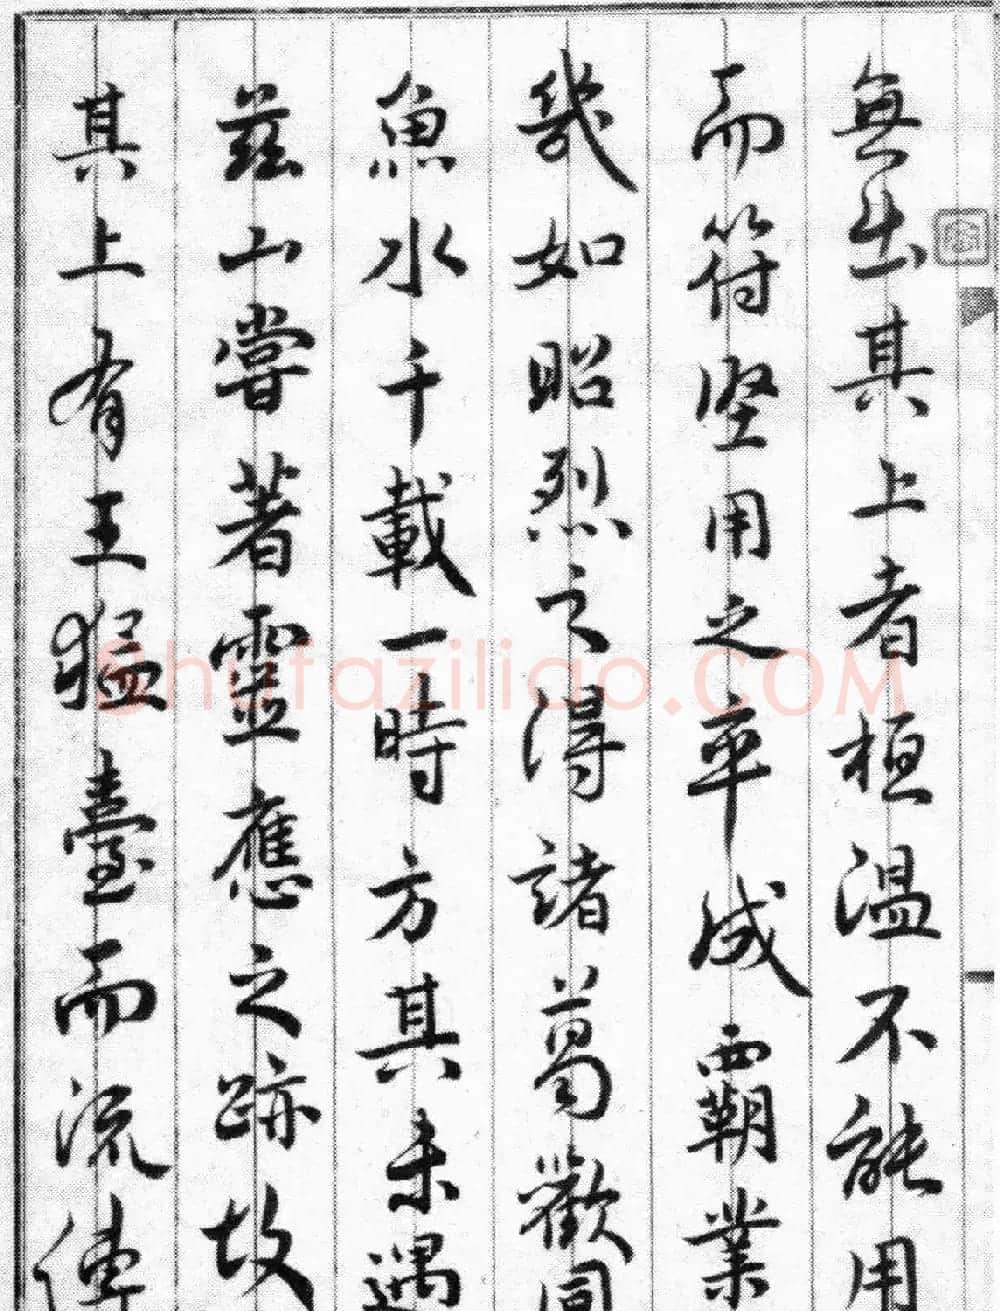 無出其上者桓溫不能用
而符堅用之卒成霸業
幾如昭烈之得諸葛歡同
魚水千載一時方其未遇
茲山嘗著靈應之跡故
其上有王猛臺而流傳
Shufaziliao.COM